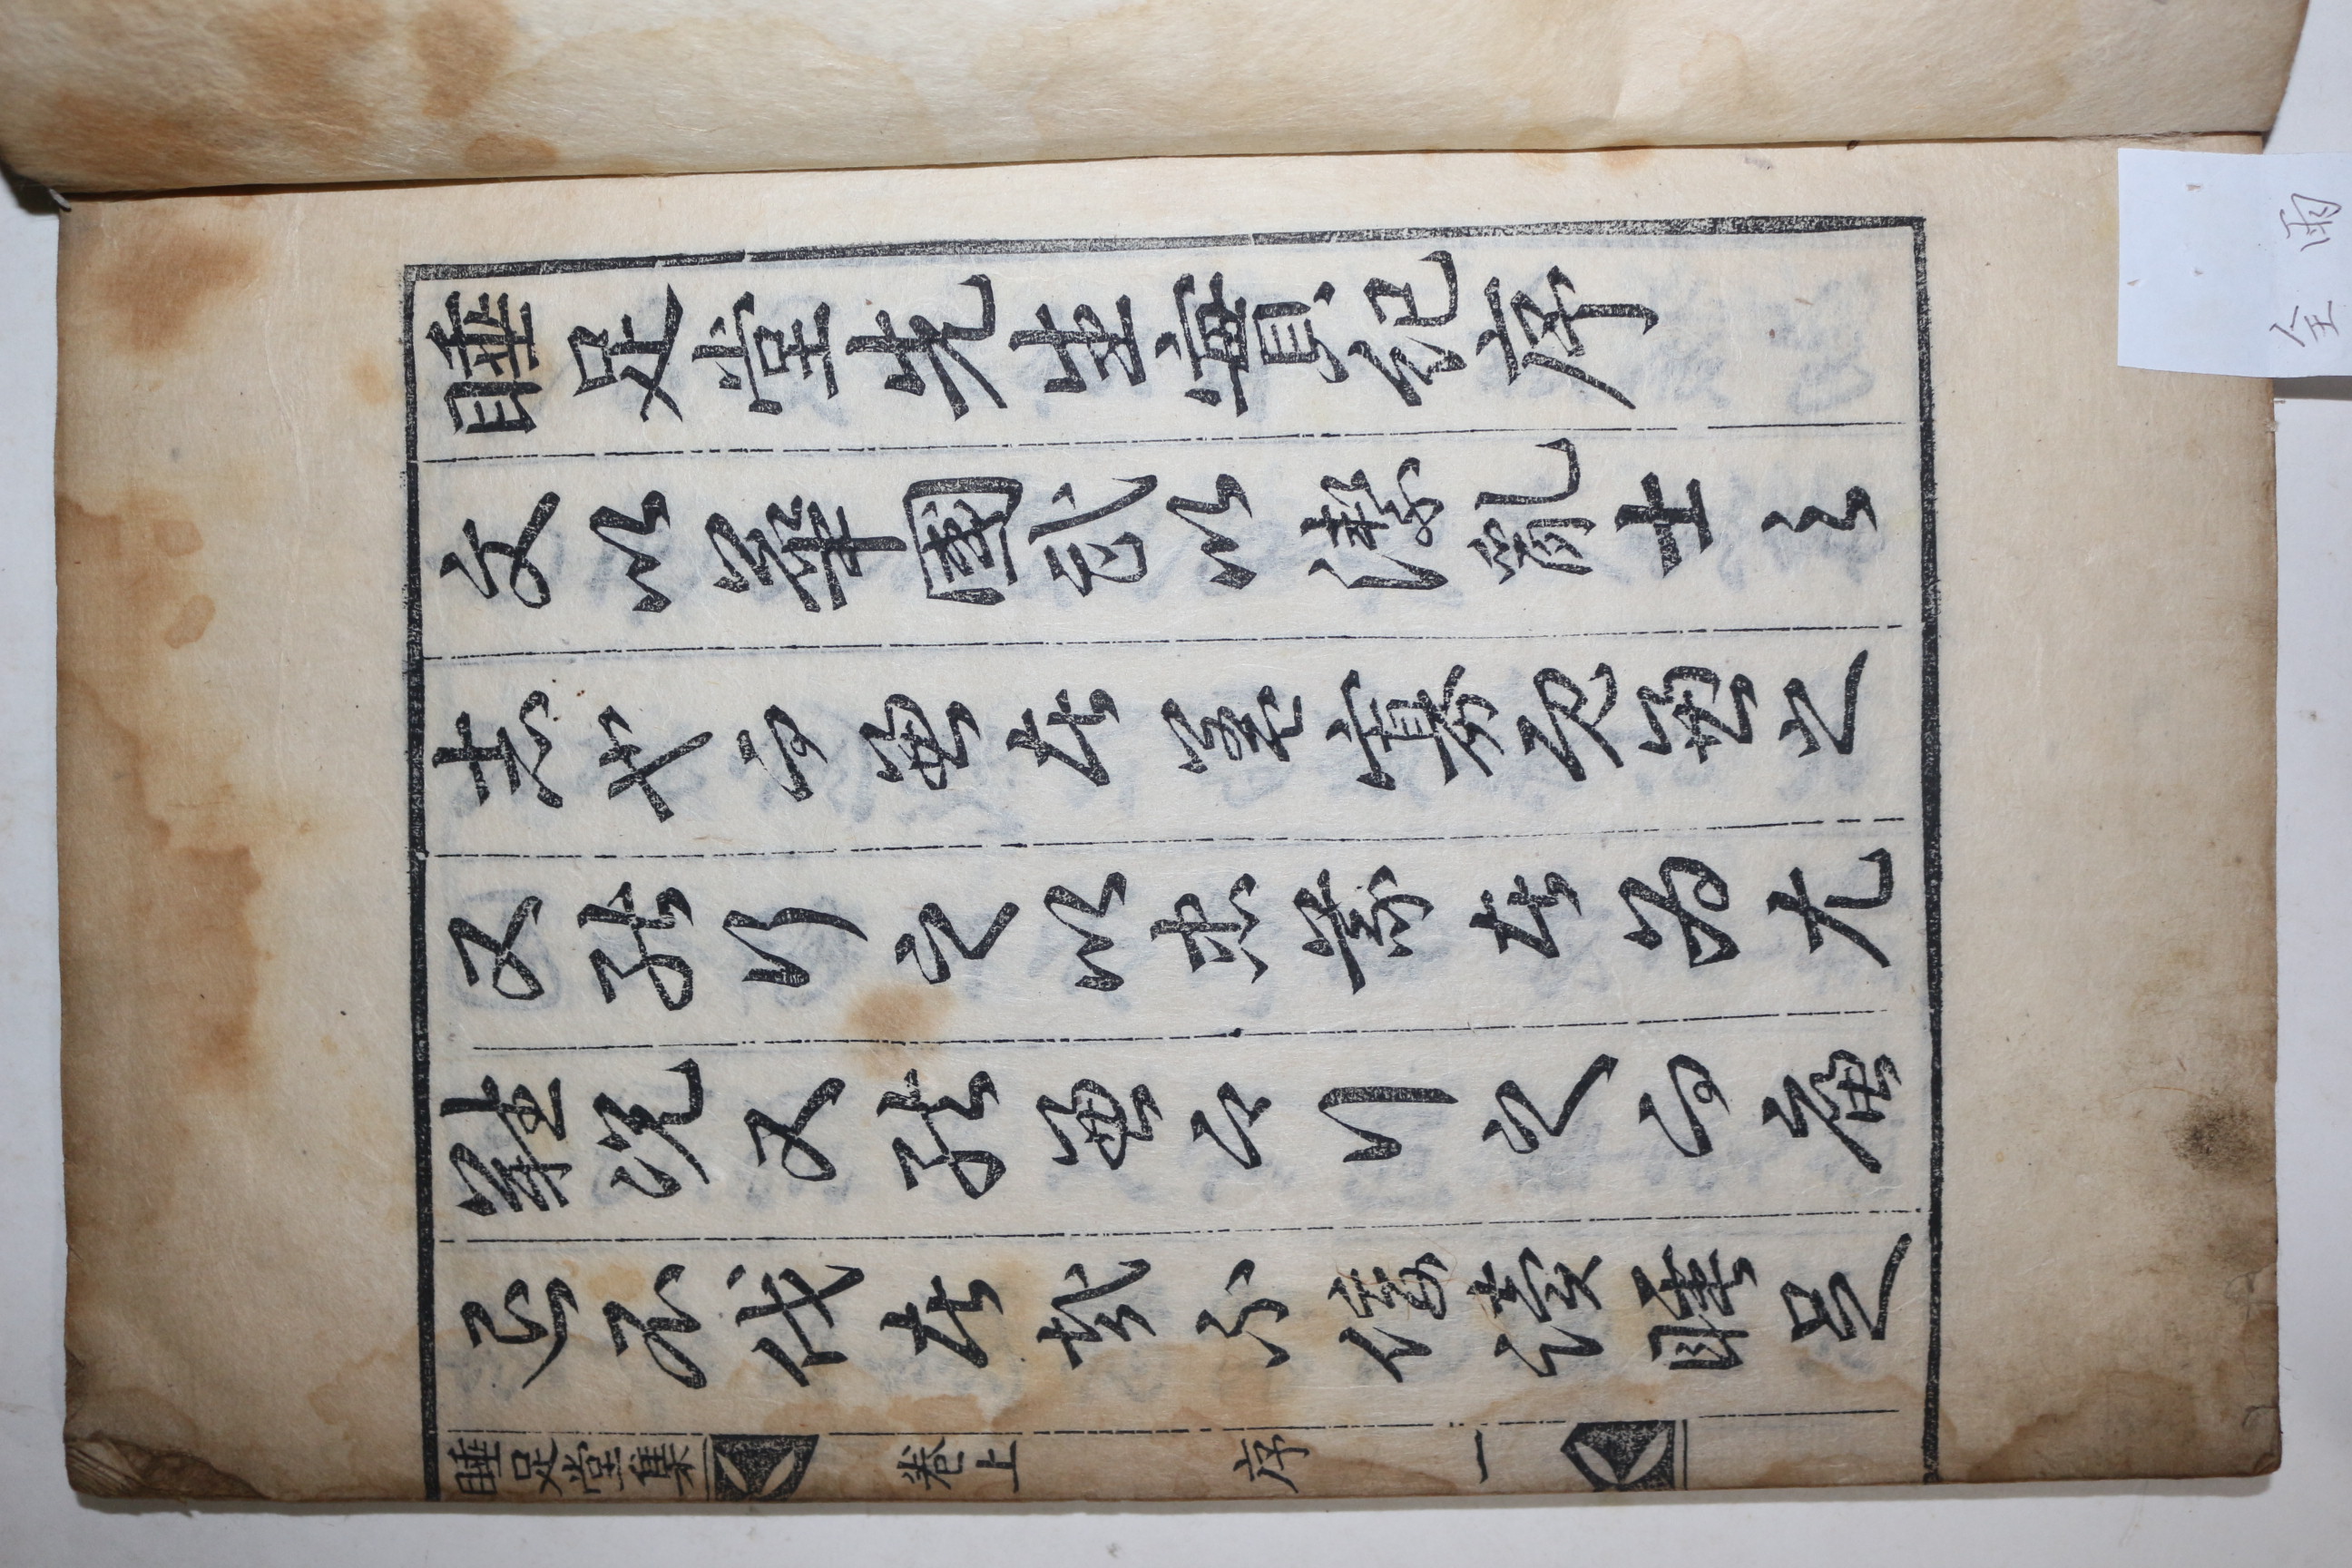 睡足堂先生實紀序
文以華國武以潔亂士之
志也而兼者蓋寡兼之
又能行之以忠義者爲尤
難況又能兼之行之而廉
退不伐者哉不佞讀睡足
睡足堂集 卷上 序 一
全 雨